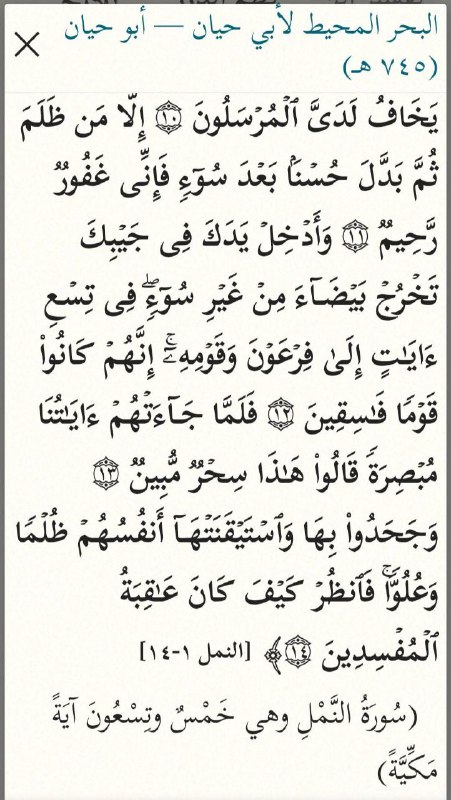 البحر المحيط لأبي حيان — أبو حيان
(٧٤٥ هـ)
يَخَافُ لَدَىَّ ٱلْمُرْسَلُونَ ١٠ إِلَّا مَن ظَلَمَ
ثُمَّ بَدَّلَ حُسْنًۢا بَعْدَ سُوٓءٍ فَإِنِّى غَفُورٌ
رَّحِيمٌ ١١ وَأَدْخِلْ يَدَكَ فِى جَيْبِكَ
تَخْرُجْ بَيْضَآءَ مِنْ غَيْرِ سُوٓءٍۖ فِى تِسْعِ
ءَايَـٰتٍ إِلَىٰ فِرْعَوْنَ وَقَوْمِهِۦٓۚ إِنَّهُمْ كَانُوا۟
قَوْمًا فَـٰسِقِينَ ١٢ فَلَمَّا جَآءَتْهُمْ ءَايَـٰتُنَا
مُبْصِرَةً قَالُوا۟ هَـٰذَا سِحْرٌ مُّبِينٌ ١٣
وَجَحَدُوا۟ بِهَا وَٱسْتَيْقَنَتْهَآ أَنفُسُهُمْ ظُلْمًا
وَعُلُوًّاۚ فَٱنظُرْ كَيْفَ كَانَ عَـٰقِبَةُ
ٱلْمُفْسِدِينَ ١٤﴾ [النمل ١-١٤]
(سُورَةُ النَّمْلِ وهي خَمْسٌ وتِسْعُونَ آيَةً
مَكِّيَّةً)